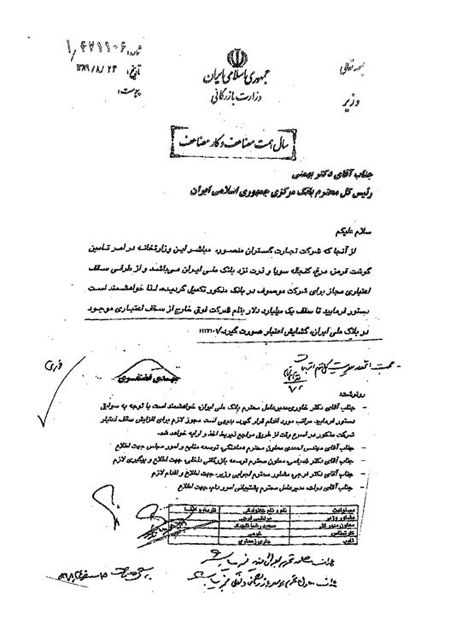 شماره: ۱/۴۷۱۱۰۶
تاریخ: ۱۳۸۹/۸/۲۴
پیوست:
بسمه تعالی
جمهوری اسلامی ایران
وزارت بازرگانی
وزیر
سال همت مضاعف و کار مضاعف
جناب آقای دکتر بهمنی
رئیس کل محترم بانک مرکزی جمهوری اسلامی ایران
سلام علیکم
از آنجا که شرکت تجارت گستران منصور، مباشر این وزارتخانه در امر تامین
گوشت قرمز، مرغ، کنجاله سویا و ذرت نزد بانک ملی ایران می‌باشد و از طرفی سقف
اعتباری مجاز برای شرکت موصوف در بانک مذکور تکمیل گردیده، لذا خواهشمند است
دستور فرمایید تا سقف یک میلیارد دلار بنام شرکت فوق خارج از سقف اعتباری موجود
در بانک ملی ایران، گشایش اعتبار صورت گیرد.
فوری
مهدی غضنفری
رونوشت:
- جناب آقای دکتر خاوری مدیرعامل محترم بانک ملی ایران، خواهشمند است با توجه به سوابق
دستور فرمایید مراتب مورد اقدام قرار گیرد، بدیهی است مجوز لازم برای افزایش سقف اعتبار
شرکت مذکور در اسرع وقت از طریق مراجع ذیربط اخذ و ارایه خواهد شد.
- جناب آقای مهندس احمدی معاون محترم هماهنگی، توسعه منابع و امور مجلس جهت اطلاع
- جناب آقای دکتر معاون محترم توسعه بازرگانی داخلی جهت اطلاع و پیگیری لازم
- جناب آقای دکتر مشاور محترم اجرایی وزیر، جهت اطلاع و اقدام لازم
- جناب آقای مدیرعامل محترم پشتیبانی امور دام، جهت اطلاع
مسئولیت نام و نام خانوادگی تاریخ و امضا
مشاور وزیر
معاون مدیر کل
کارشناس
تایپ